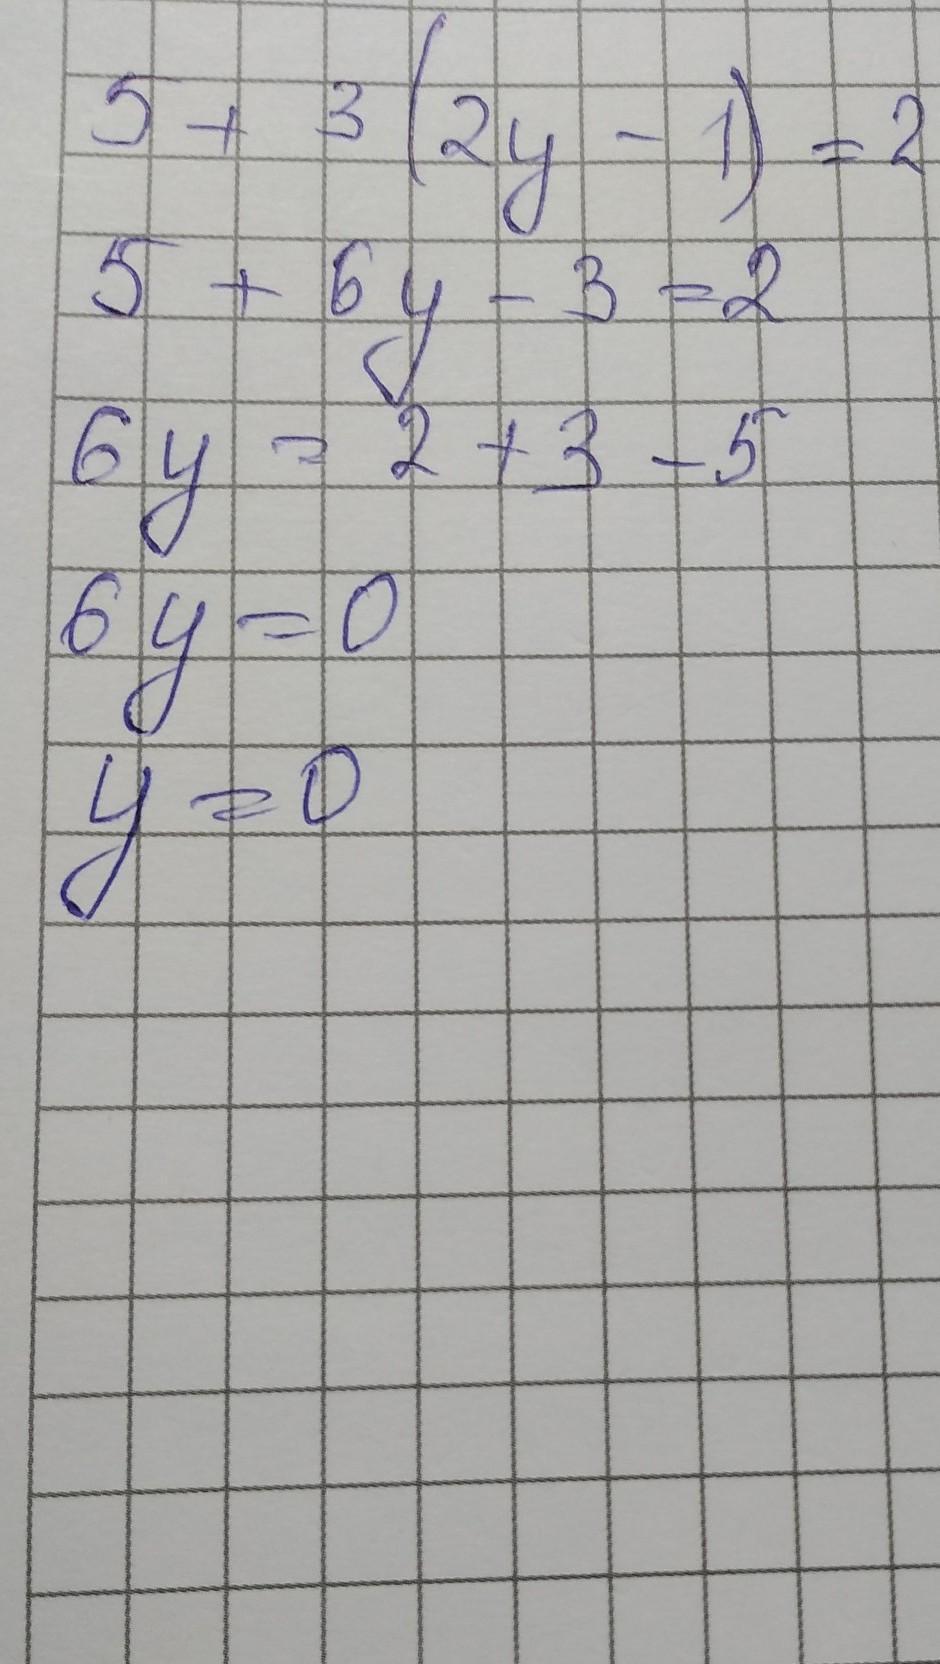 5 + 3 (2y - 1) = 2
5 + 6y - 3 = 2
6y = 2 + 3 - 5
6y = 0
y = 0